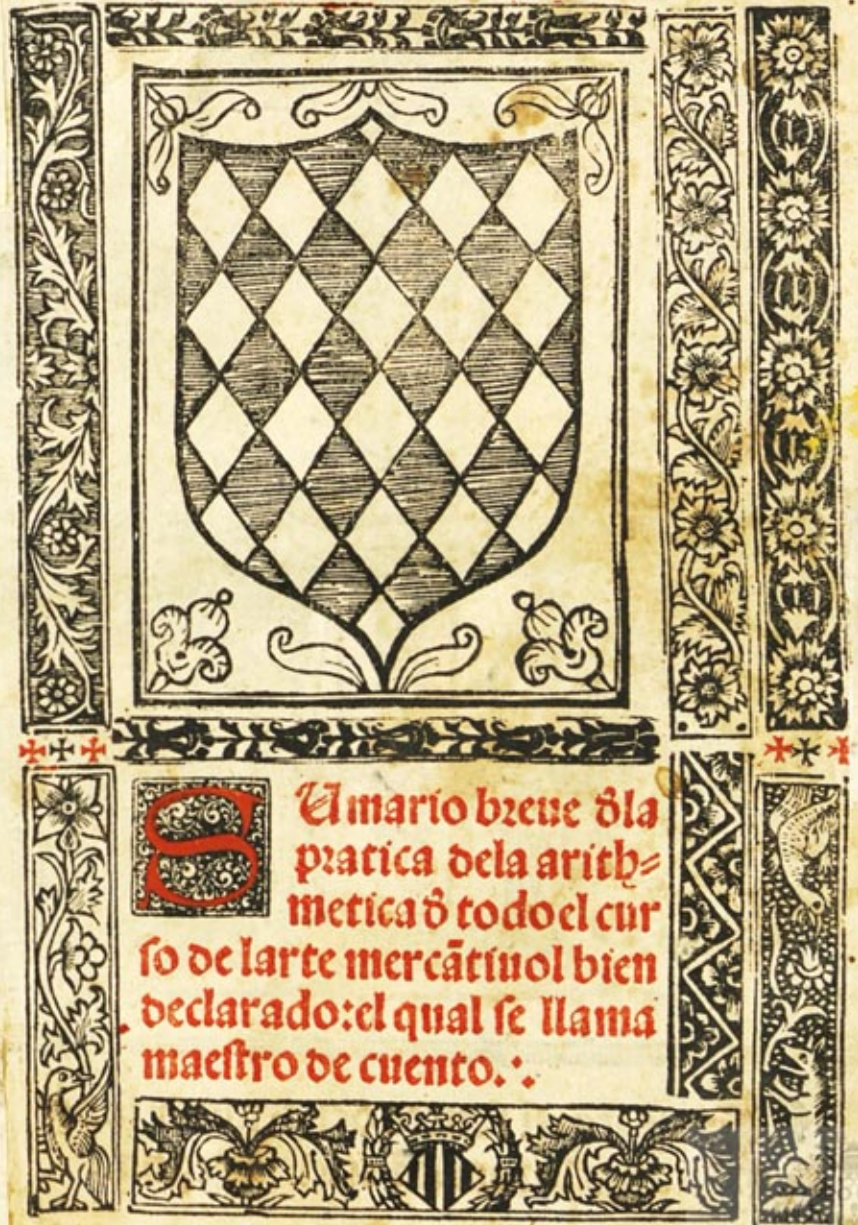 SUmario breue đla
pratica dela arith⸗
metica đ todo el cur
ſo de larte mercātiuol bien
declarado: el qual ſe llama
maeſtro de cuento.